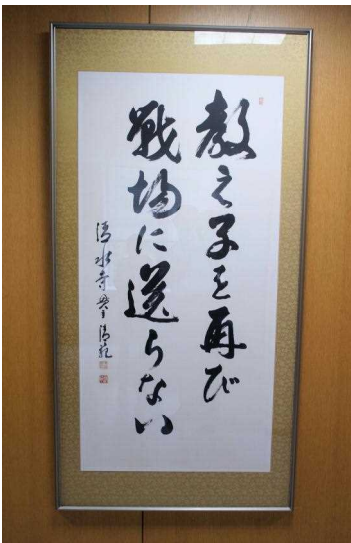 教え子を再び
戦場に送らない
清水寺 貫主 清範